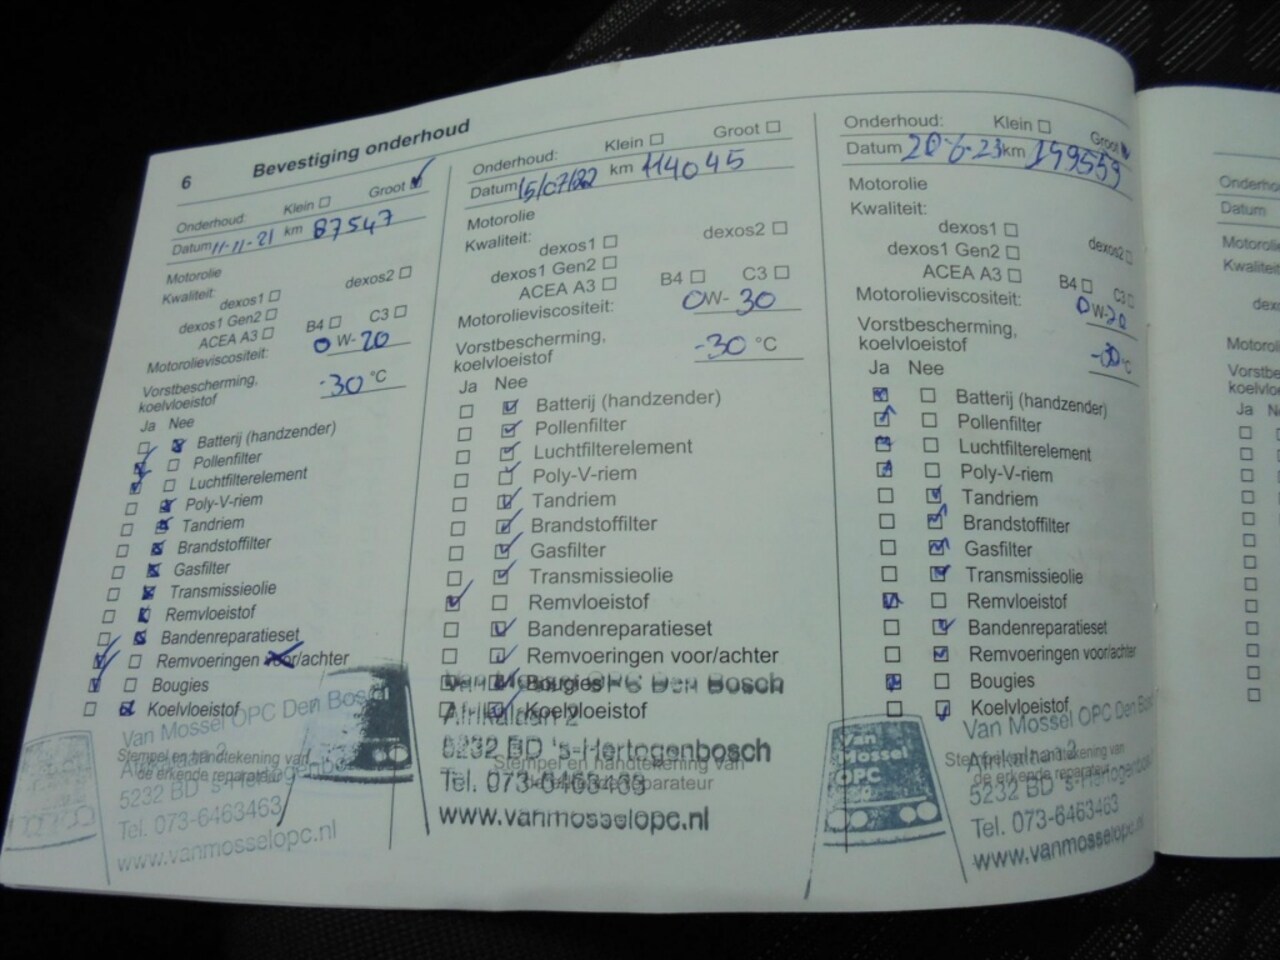 6 Bevestiging onderhoud
Onderhoud: Klein Groot
Datum 11-11-21 km 87547
Motorolie
Kwaliteit: dexos1 dexos2
dexos1 Gen2
ACEA A3 B4 C3
Motorolieviscositeit: 0 W- 20
Vorstbescherming,
koelvloeistof -30 °C
Ja Nee
Batterij (handzender)
Pollenfilter
Luchtfilterelement
Poly-V-riem
Tandriem
Brandstoffilter
Gasfilter
Transmissieolie
Remvloeistof
Bandenreparatieset
Remvoeringen voor/achter
Bougies
Koelvloeistof
Stempel en handtekening van
de erkende reparateur
Van Mossel OPC Den Bosch
5232 BD 's-Hertogenbosch
Tel. 073-6463463
www.vanmosselopc.nl
Onderhoud: Klein Groot
Datum 15/07/22 km 114045
Motorolie
Kwaliteit: dexos1 dexos2
dexos1 Gen2
ACEA A3 B4 C3
Motorolieviscositeit: 0W- 30
Vorstbescherming,
koelvloeistof -30 °C
Ja Nee
Batterij (handzender)
Pollenfilter
Luchtfilterelement
Poly-V-riem
Tandriem
Brandstoffilter
Gasfilter
Transmissieolie
Remvloeistof
Bandenreparatieset
Remvoeringen voor/achter
Bougies
Koelvloeistof
Stempel en handtekening van
de erkende reparateur
Van Mossel OPC Den Bosch
Afrikalaan 2
5232 BD 's-Hertogenbosch
Tel. 073-6463463
www.vanmosselopc.nl
Onderhoud: Klein Groot
Datum 20-6-23 km 159559
Motorolie
Kwaliteit:
dexos1 dexos2
dexos1 Gen2
ACEA A3 B4 C3
Motorolieviscositeit: 0 W-20
Vorstbescherming,
koelvloeistof -30 °C
Ja Nee
Batterij (handzender)
Pollenfilter
Luchtfilterelement
Poly-V-riem
Tandriem
Brandstoffilter
Gasfilter
Transmissieolie
Remvloeistof
Bandenreparatieset
Remvoeringen voor/achter
Bougies
Koelvloeistof
Stempel en handtekening van
de erkende reparateur
Van
Mossel
OPC
Van Mossel OPC Den Bosch
Afrikalaan 2
5232 BD 's-Hertogenbosch
Tel. 073-6463463
www.vanmosselopc.nl
Datum
Ja N